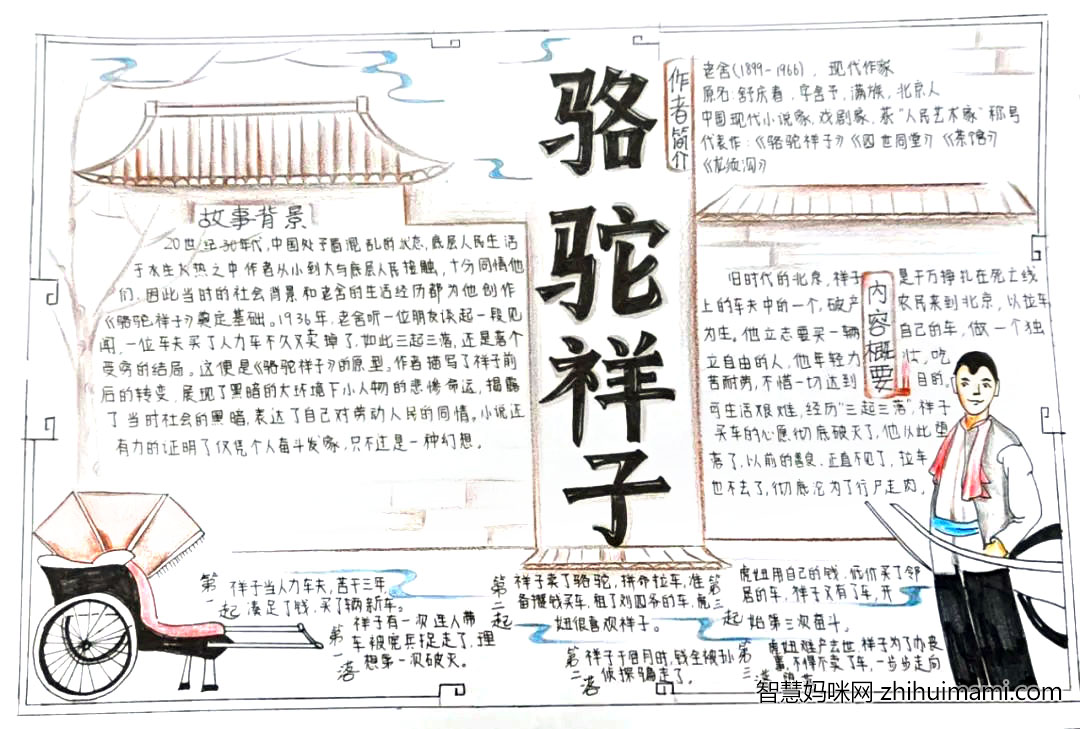 骆驼祥子
作者简介
老舍(1899-1966)，现代作家
原名:舒庆春，字舍予，满族，北京人
中国现代小说家，戏剧家，获“人民艺术家”称号
代表作：《骆驼祥子》《四世同堂》《茶馆》
《龙须沟》
故事背景
20世纪30年代，中国处于昏混乱的状态，底层人民生活
于水生火热之中作者从小到大与底层人民接触，十分同情他
们，因此当时的社会背景和老舍的生活经历都为他创作
《骆驼祥子》奠定基础。1936年，老舍听一位朋友谈起一段见
闻，一位车夫买了人力车不久又卖掉了，如此三起三落，还是落个
受穷的结局。这便是《骆驼祥子》的原型。作者描写了祥子前
后的转变，展现了黑暗的大环境下小人物的悲惨命运，揭露
了当时社会的黑暗，表达了自己对劳动人民的同情。小说还
有力的证明了仅凭个人奋斗发家，只不过是一种幻想。
内容概要
旧时代的北京，祥子是千万挣扎在死亡线
上的车夫中的一个，破产农民来到北京，以拉车
为生。他立志要买一辆自己的车，做一个独
立自由的人，他年轻力壮，吃
苦耐劳，不惜一切达到目的，
可生活艰难，经历“三起三落”，祥子
买车的心愿彻底破灭了，他从此堕
落了，以前的善良、正直不见了，拉车
也不去了，彻底沦为了行尸走肉。
第一起
祥子当人力车夫，苦干三年，
凑足了钱，买了辆新车。
第一落
祥子有一次连人带
车被宪兵捉走了，理
想第一次破灭。
第二起
祥子卖了骆驼，拼命拉车，准
备攒钱买车，租了刘四爷的车，虎
妞很喜欢祥子。
第二落
祥子干包月时，钱全被孙
侦探骗走了。
第三起
虎妞用自己的钱，低价买了邻
居的车，祥子又有了车，开
始第三次奋斗。
第三落
虎妞难产去世，祥子为了办丧
事，不得不卖了车，一步步走向
智慧妈咪网 zhihuimami.com